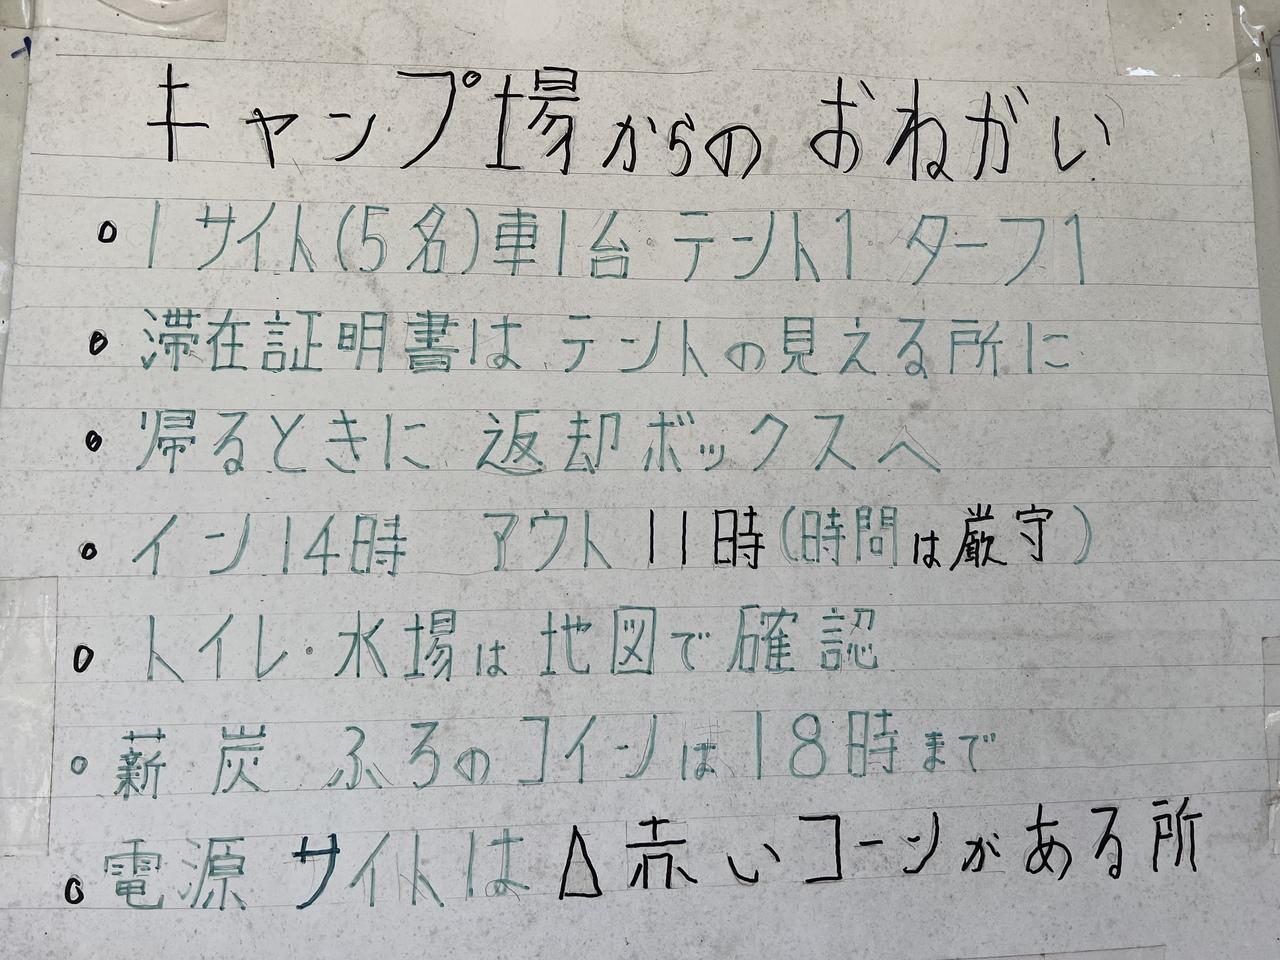 キャンプ場からのおねがい
○ 1サイト(5名)車1台 テント1 ターフ1
○ 滞在証明書は テントの見える所に
○ 帰るときに 返却ボックスへ
○ イン14時 アウト11時(時間は厳守)
○ トイレ・水場は地図で確認
○ 薪 炭 ふろのコインは18時まで
○ 電源サイトは△赤いコーンがある所